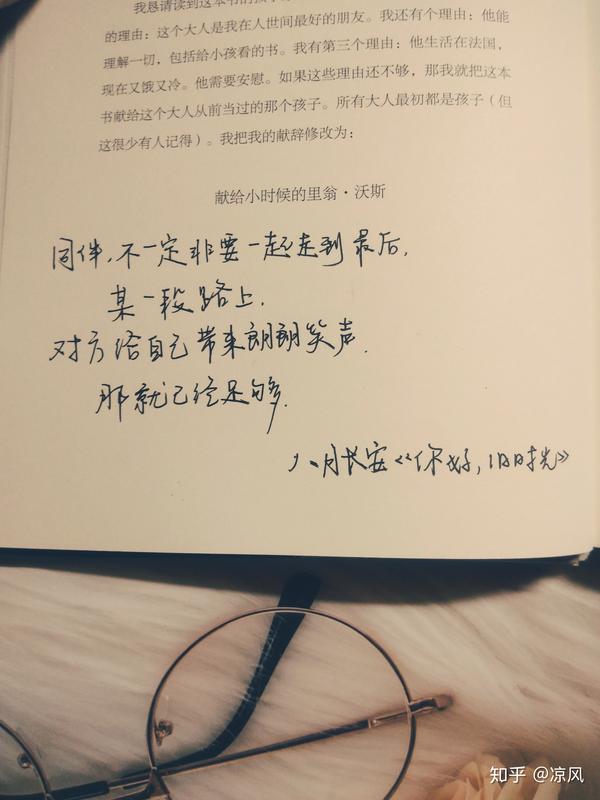 我恳请读到这本书的孩子
的理由：这个大人是我在人世间最好的朋友。我还有个理由：他能
理解一切，包括给小孩看的书。我有第三个理由：他生活在法国，
现在又饿又冷。他需要安慰。如果这些理由还不够，那我就把这本
书献给这个大人从前当过的那个孩子。所有大人最初都是孩子（但
这很少有人记得）。我把我的献辞修改为：
献给小时候的里翁·沃斯
同伴，不一定非要一起走到最后，
某一段路上，
对方给自己带来朗朗笑声，
那就已经足够.
八月长安《你好，旧时光》
知乎 @凉风